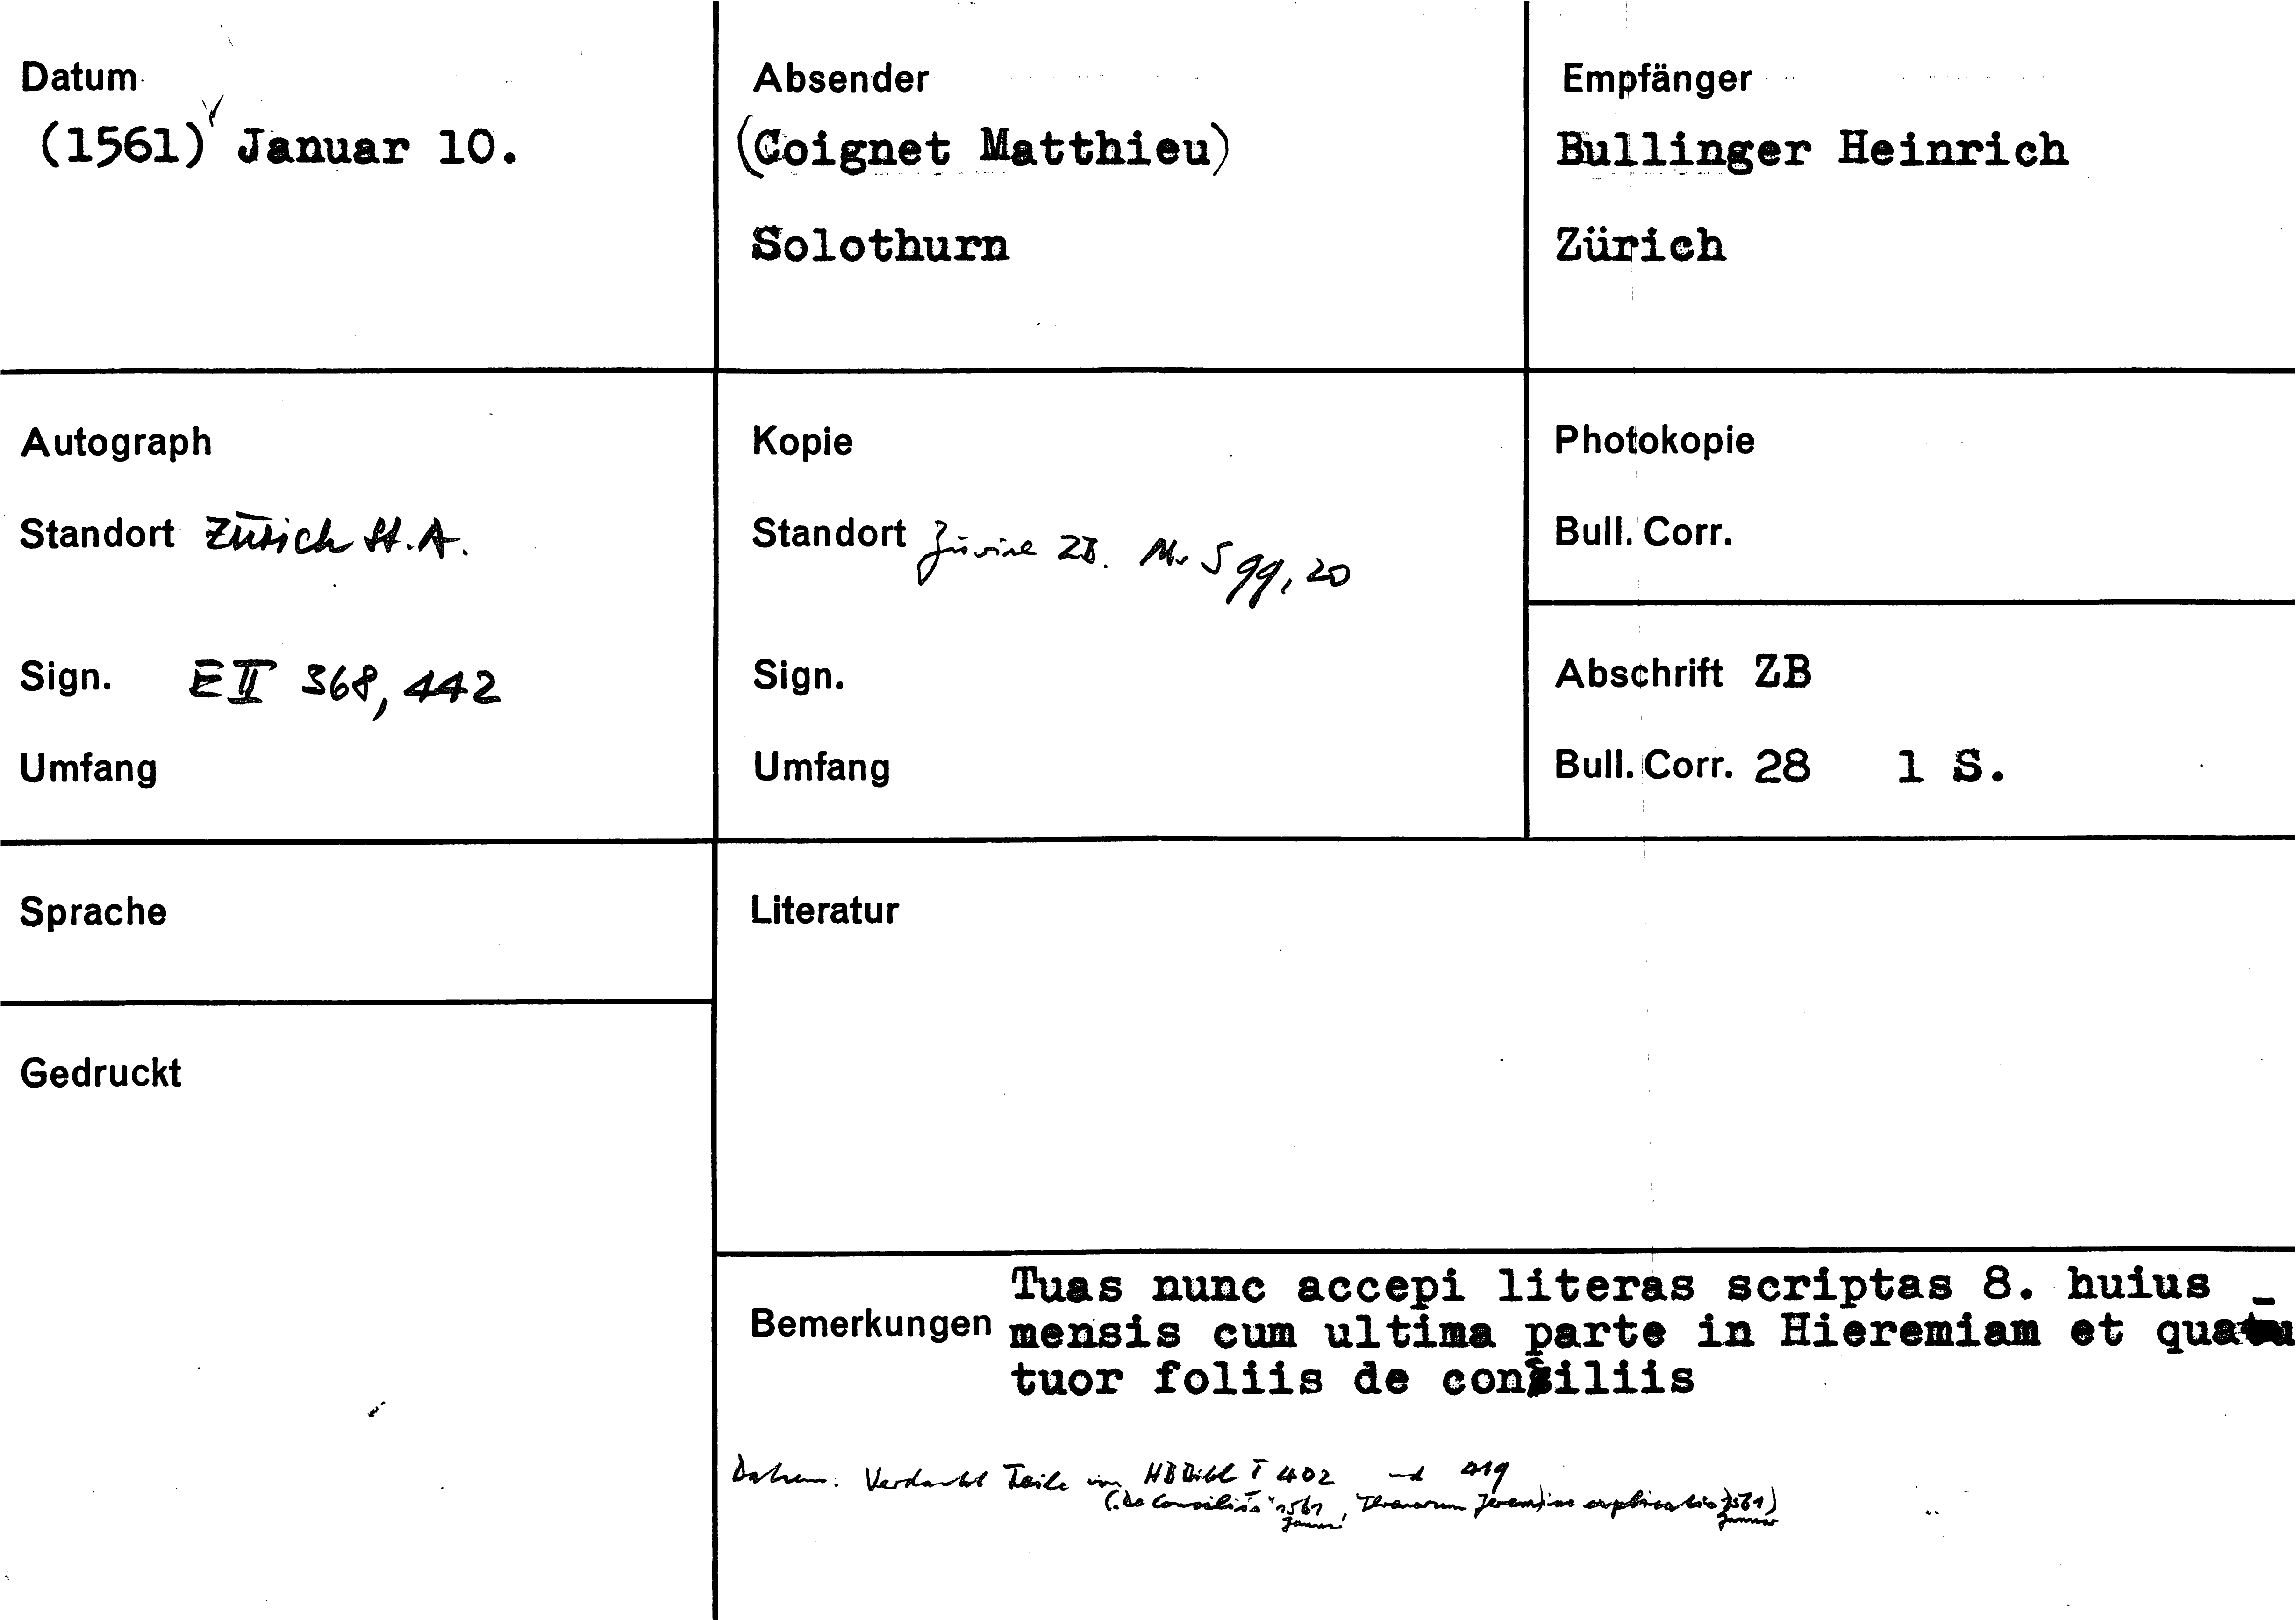 Datum
(1561) Januar 10.
Absender
(Coignet Matthieu)
Solothurn
Empfänger
Bullinger Heinrich
Zürich
Autograph
Standort Zürich St.A.
Sign. E II 368, 442
Umfang
Kopie
Standort Zürich ZB. Ms S 99, 20
Sign.
Umfang
Photokopie
Bull. Corr.
Abschrift ZB
Bull. Corr. 28 1 S.
Sprache
Literatur
Gedruckt
Bemerkungen
Tuas nunc accepi literas scriptas 8. huius
mensis cum ultima parte in Hieremiam et qua-
tuor foliis de consiliis
Datum. Verdankt Teile von HBBibl I 402 und 419
("De Conciliis" 1561, Threnorum Jeremiae explicatio 1561)
Januar Januar